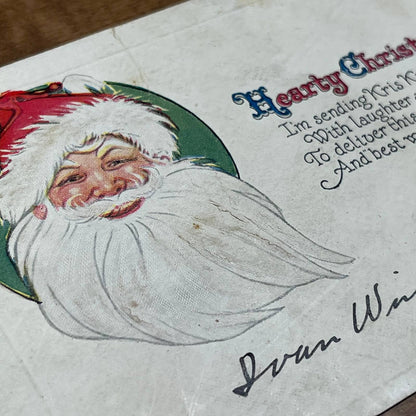 Hearty Christ
I'm sending Kris K
With laughter
To deliver this
And best w
Ivan Win